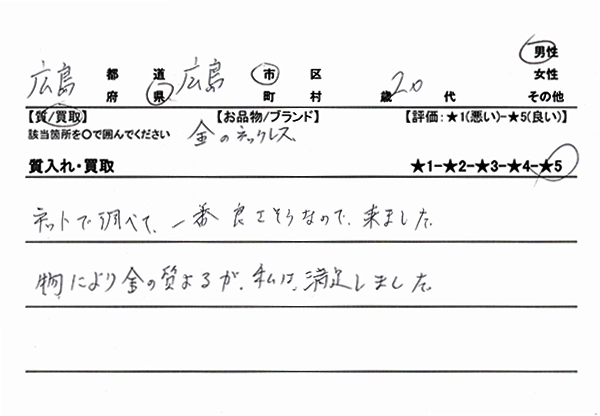 広島 都 道 府 県 広島 市 区 町 村 歳 20 代 男性 女性 その他
【質/買取】 【お品物/ブランド】 【評価:★1(悪い)-★5(良い)】
該当箇所を〇で囲んでください 金のネックレス
質入れ・買取 ★1-★2-★3-★4-★5
ネットで調べて、一番良さそうなので、来ました。
物により金の質よるが、私は、満足しました。